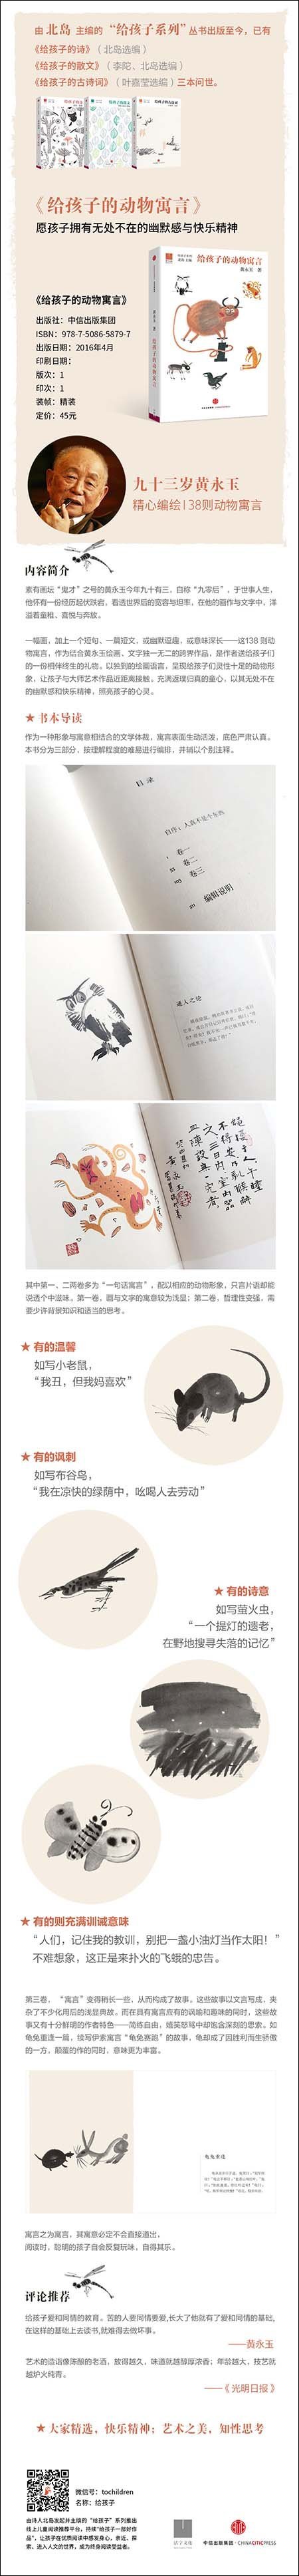 由 北岛 主编的 “给孩子系列” 丛书出版至今，已有
《给孩子的诗》（北岛选编）
《给孩子的散文》（李陀、北岛选编）
《给孩子的古诗词》（叶嘉莹选编）三本问世。
《给孩子的动物寓言》
愿孩子拥有无处不在的幽默感与快乐精神
《给孩子的动物寓言》
出版社：中信出版集团
ISBN：978-7-5086-5879-7
出版日期：2016年4月
印刷日期：
版次：1
印次：1
装帧：精装
定价：45元
给孩子的动物寓言
黄永玉 著
给孩子的动物寓言
九十三岁黄永玉
精心编绘138则动物寓言
内容简介
素有画坛“鬼才”之号的黄永玉今年九十有三，自称“九零后”，于世事人生，
他怀有一份经历起伏跌宕，看透世界后的宽容与坦率，在他的画作与文字中，洋
溢着童稚、喜悦与奔放。
一幅画，加上一个短句，一篇短文，或幽默逗趣，或意味深长——这138 则动
物寓言，作为结合黄永玉绘画、文字独一无二的跨界作品，是作者送给孩子们
的一份相伴终生的礼物，以独到的绘画语言，呈现给孩子们灵性十足的动物形
象，让孩子与大师艺术作品近距离接触，充满返璞归真的童心，以其无处不在
的幽默感和快乐精神，照亮孩子的心灵。
★ 书本导读
作为一种形象与寓意相结合的文学体裁，寓言表面生动活泼，底色严肃认真。
本书分为三部分，按理解程度的难易进行编排，并辅以个别注释。
目录
自序：人真不是个东西
1 卷一
卷二
卷三
编辑说明
通人之论
其中第一、二两卷多为“一句话寓言”，配以相应的动物形象，只言片语却能
说透个中滋味。第一卷，画与文字的寓意较为浅显；第二卷，哲理性变强，需
要少许背景知识和适当的思考。
★ 有的温馨
如写小老鼠，
“我丑，但我妈喜欢”
★ 有的讽刺
如写布谷鸟，
“我在凉快的绿荫中，吆喝人去劳动”
★ 有的诗意
如写萤火虫，
“一个提灯的遗老，
在野地搜寻失落的记忆”
★ 有的则充满训诫意味
“人们，记住我的教训，别把一盏小油灯当作太阳！”
不难想象，这正是来扑火的飞蛾的忠告。
第三卷，“寓言”变得稍长一些，从而构成了故事。这些故事以文言写成，夹
杂了不少化用后的浅显典故。而在具有寓言应有的讽喻和趣味的同时，这些故
事又有十分鲜明的作者特色——简练自由，嬉笑怒骂中却饱含深刻的思索。如
龟兔重逢一篇，续写伊索寓言“龟兔赛跑”的故事，龟却成了因胜利而生骄傲
的一方，颠覆的作的同时，意味更为丰富。
龟兔重逢
寓言之为寓言，其寓意必定不会直接道出，
阅读时，聪明的孩子自会反复玩味，自得其乐。
评论推荐
给孩子爱和同情的教育。苦的人要同情要爱,长大了他就有了爱和同情的基础,
在这样的基础上去读书,就难得去做坏事。
——黄永玉
艺术的造诣像陈酿的老酒，放得越久，味道就越醇厚浓香；年龄越大，技艺就
越炉火纯青。
——《光明日报》
★ 大家精选，快乐精神；艺术之美，知性思考
微信号：tochildren
名称：给孩子
由诗人北岛发起并主编的“给孩子”系列推出
线上儿童阅读推荐平台，持续“给孩子一部好作
品”，让孩子在优质阅读中感发身心，亲近、探
索、进入人文的世界，成为终身阅读受益者。
活字文化
中信出版集团·CHINACITICPRESS